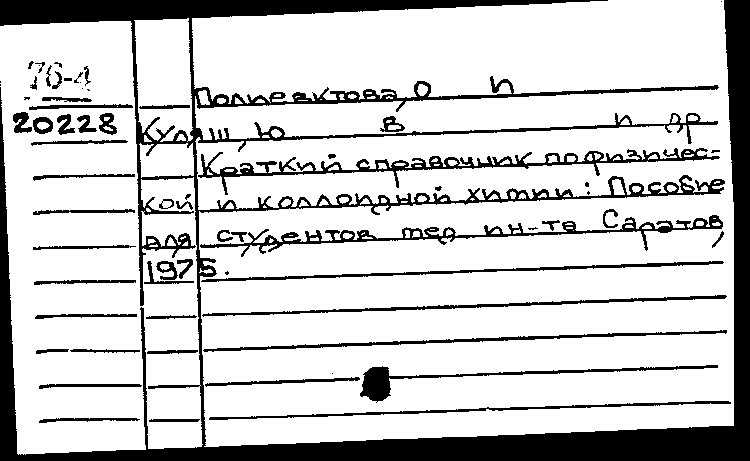 76-4
Полиевктова, О п
20228 Куляш, Ю В и др
Краткий справочник по физичес=
кой и коллоидной химии: Пособие
для студентов мед ин-та Саратов,
1975.